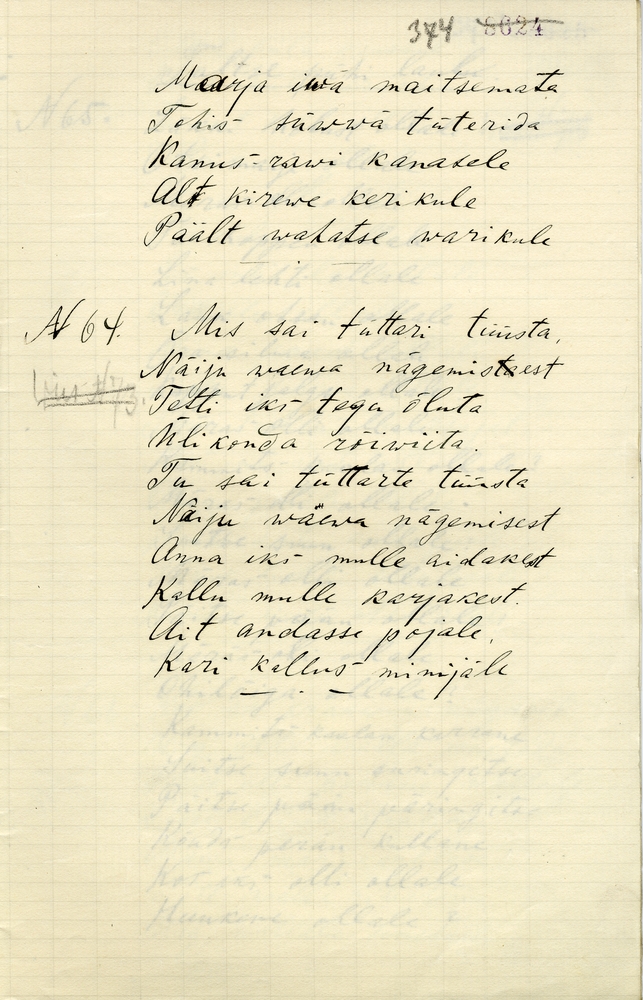 374 8624
Maarja iwä maitsemata
Tehis süwwä tüterida
Kanus-rawi kanasele
Alt kirewe kerikule
Päält wahatse warikule
N 64.
Mis sai tuttari tüüsta,
Näiju waewa nägemisest
Tetti iks tega õluta
Ülikonda röiwiita.
Tu sai tüttarte tüüsta
Näiju wäewa nägemisest
Anna iks mulle aidakest
Kallu mulle karjakest.
Ait andasse pojale,
Kari kallus minijäle